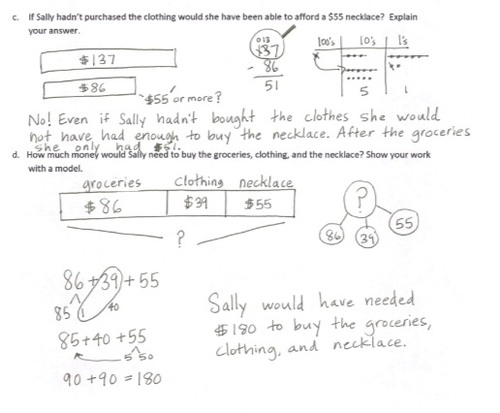 c. If Sally hadn't purchased the clothing would she have been able to afford a $55 necklace? Explain
your answer.
$137
$86
$55 or more?
0 13
137
- 86
51
100's 10's 1's
5 1
No! Even if Sally hadn't bought the clothes she would
not have had enough to buy the necklace. After the groceries
she only had $51.
d. How much money would Sally need to buy the groceries, clothing, and the necklace? Show your work
with a model.
groceries clothing necklace
$86 $39 $55
?
?
86 39 55
86 + 39 + 55
85 1 40
85 + 40 + 55
5 50
90 + 90 = 180
Sally would have needed
$180 to buy the groceries,
clothing, and necklace.